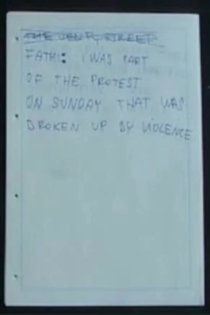 FATHI: I WAS PART
OF THE PROTEST
ON SUNDAY THAT WAS
BROKEN UP BY VIOLENCE